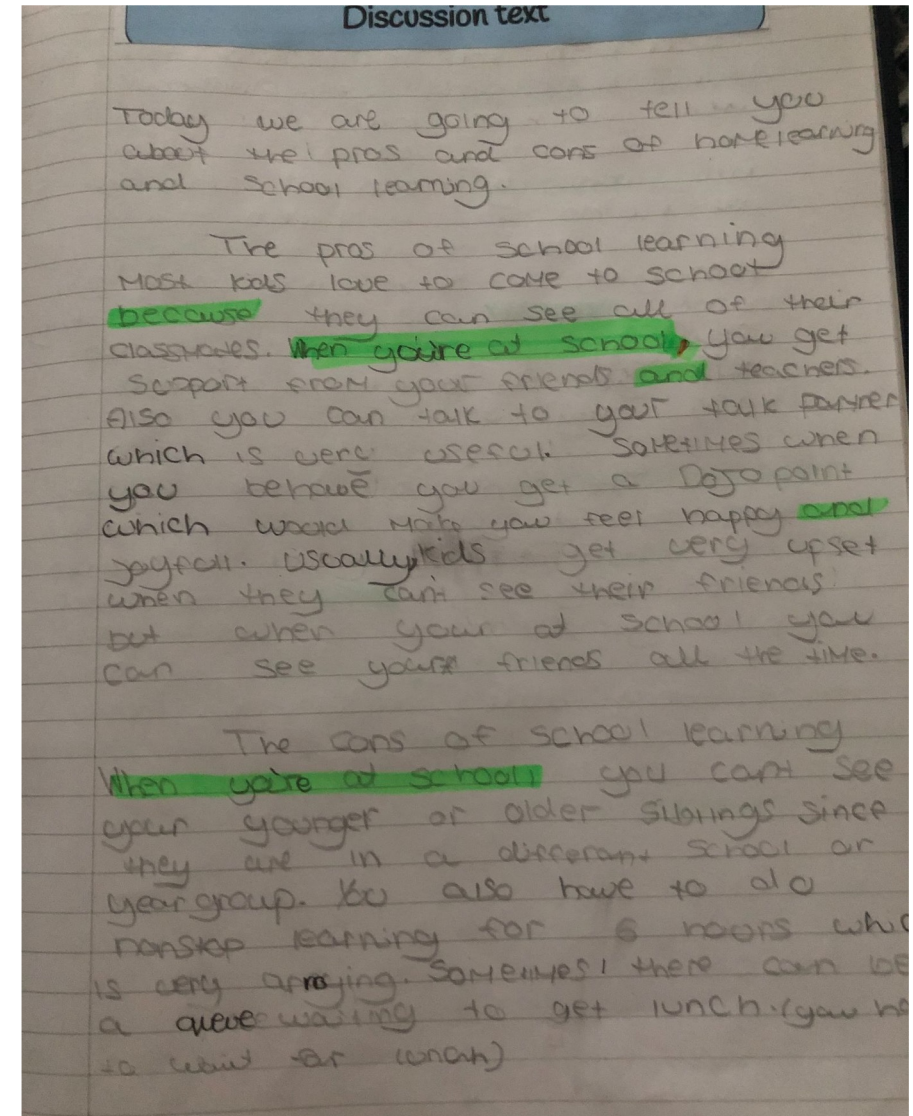 Discussion text
Today we are going to tell you
about the pros and cons of homelearning
and school learning.
The pros of school learning
Most kids love to come to school
because they can see all of their
classmates. When you're at school, you get
support from your friends and teachers.
Also you can talk to your talk partner
which is very useful. Sometimes when
you behave you get a DoJo point
which would make you feel happy and
joyfull. Usually, kids get very upset
when they can't see their friends
but when your at school you
can see your friends all the time.
The cons of school learning
When you're at school, you can't see
your younger or older siblings since
they are in a differant school or
year group. You also have to do
nonstop learning for 6 hours whic
is very annoying. Sometimes, there can be
a queue waiting to get lunch. (you ha
to wait for lunch)